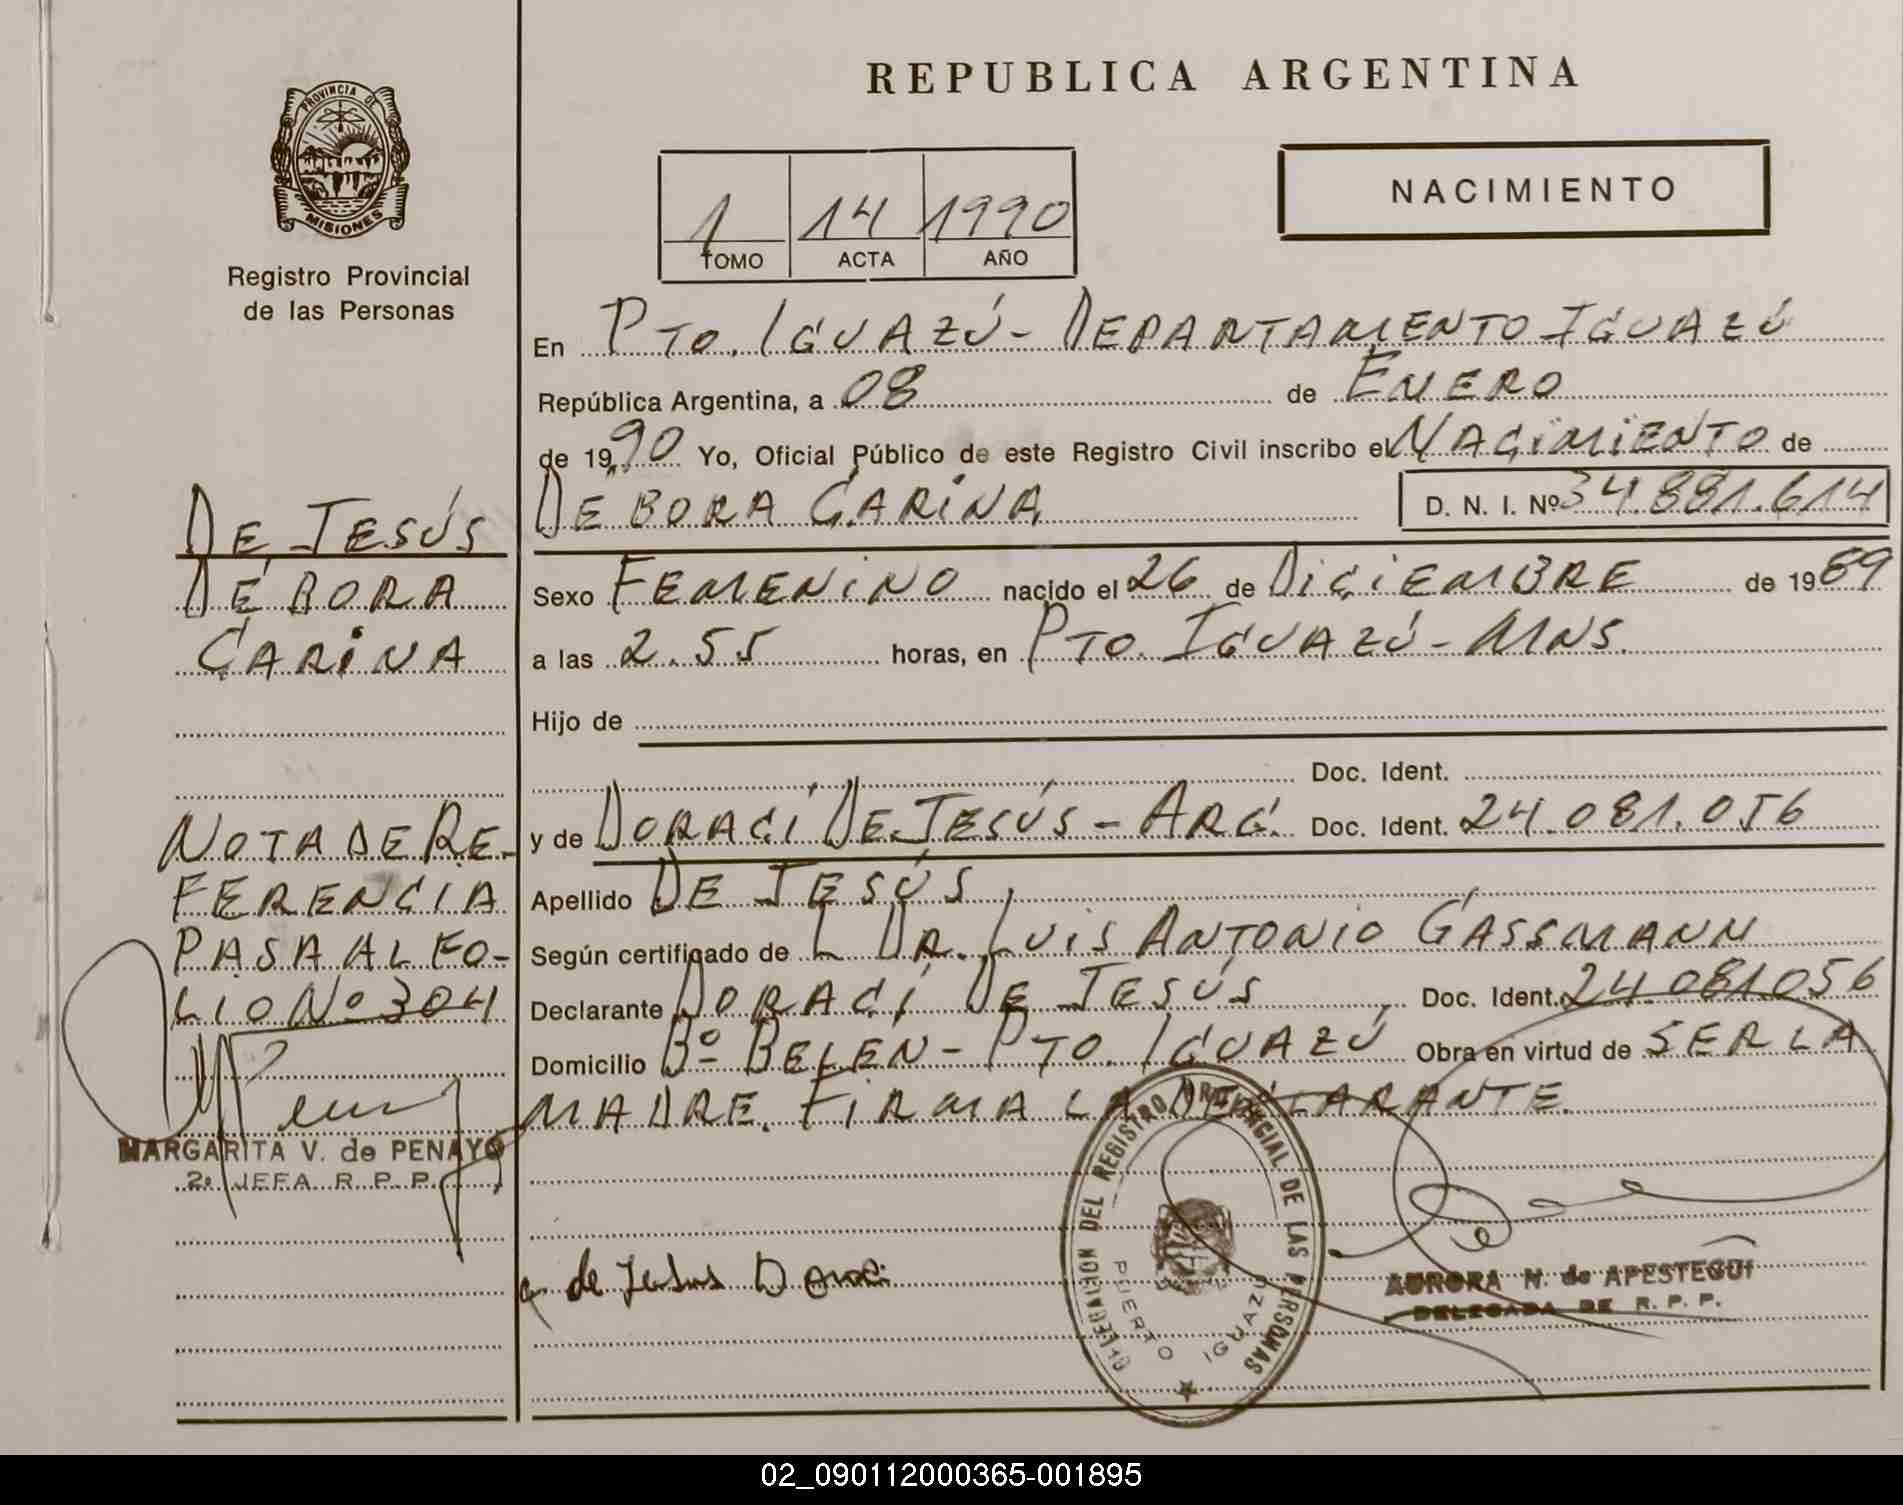 REPUBLICA ARGENTINA
PROVINCIA DE
MISIONES
Registro Provincial
de las Personas
1 14 1990
TOMO ACTA AÑO
NACIMIENTO
En PTO. IGUAZÚ - DEPARTAMENTO IGUAZÚ
República Argentina, a 08 de ENERO
de 1990 Yo, Oficial Público de este Registro Civil inscribo el NACIMIENTO de
DEBORA CARINA D. N. I. Nº 34.881.614
Sexo FEMENINO nacido el 26 de DICIEMBRE de 1989
a las 2.55 horas, en PTO. IGUAZÚ - MNS.
Hijo de
Doc. Ident.
y de DORACI DE JESÚS - ARG. Doc. Ident. 24.081.056
Apellido DE JESÚS
Según certificado de L DR. LUIS ANTONIO GASSMANN
Declarante DORACI DE JESÚS Doc. Ident. 24.081056
Domicilio Bº BELÉN - PTO. IGUAZÚ Obra en virtud de SER LA
MADRE. FIRMA LA DECLARANTE.
DE JESÚS
DÉBORA
CARINA
NOTA DE RE-
FERENCIA
PASA AL FO-
LIO Nº 304
MARGARITA V. de PENAYO
2º JEFA R. P. P.
de Jesus Doraci
DELEGACION DEL REGISTRO PROVINCIAL DE LAS PERSONAS
PUERTO IGUAZU
AURORA N. de APESTEGUI
DELEGADA DE R. P. P.
02_090112000365-001895